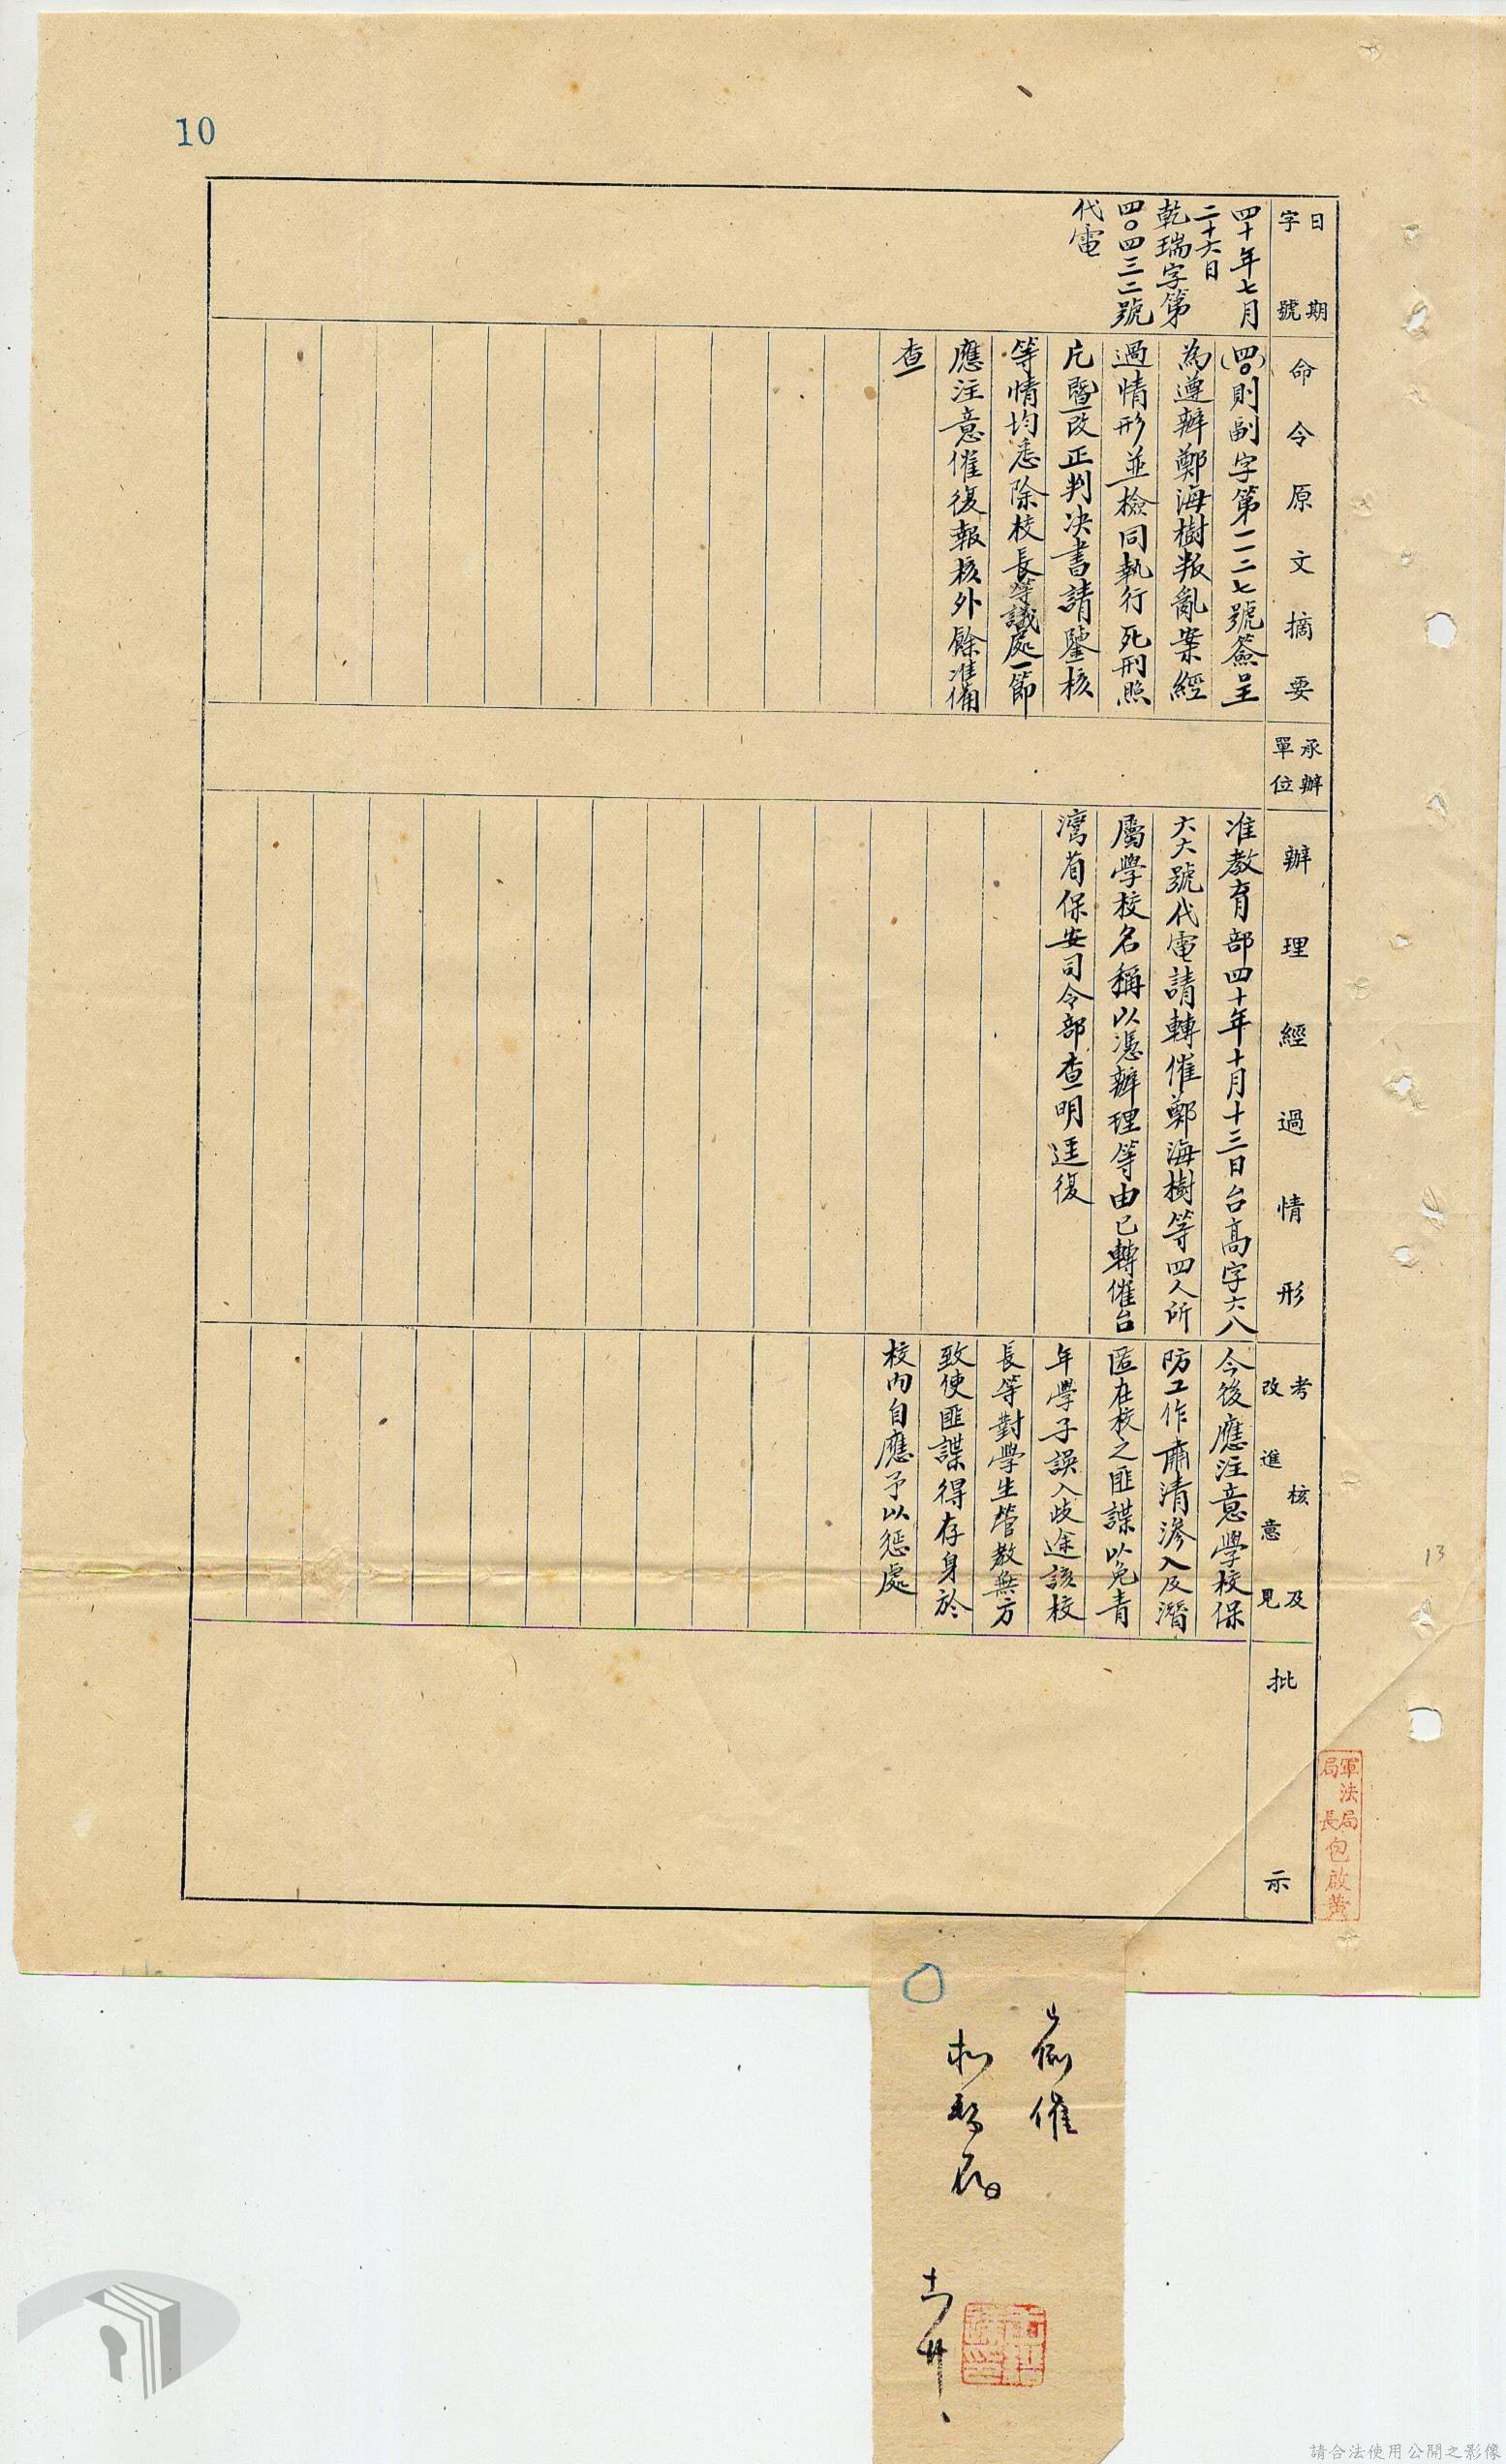 10
日期
字號
四十年七月
二十六日
乾瑞字第
四〇四三二號
代電
命令原文摘要
(四〇)則副字第一二二七號簽呈
為遵辦鄭海樹叛亂案經
過情形並檢同執行死刑照
片暨改正判決書請鑒核
等情均悉除校長等議處一節
應注意催復報核外餘准備
查
承辦
單位
辦理經過情形
准教育部四十年十月十三日台高字六八
六六號代電請轉催鄭海樹等四人所
屬學校名稱以憑辦理等由已轉催台
灣省保安司令部查明逕復
考核及
改進意見
今後應注意學校保
防工作肅清滲入及潛
匿在校之匪諜以免青
年學子誤入歧途該校
長等對學生管教無方
致使匪諜得存身於
校內自應予以懲處
批示
13
軍法局
局長
包啟黃
催
請合法使用公開之影像